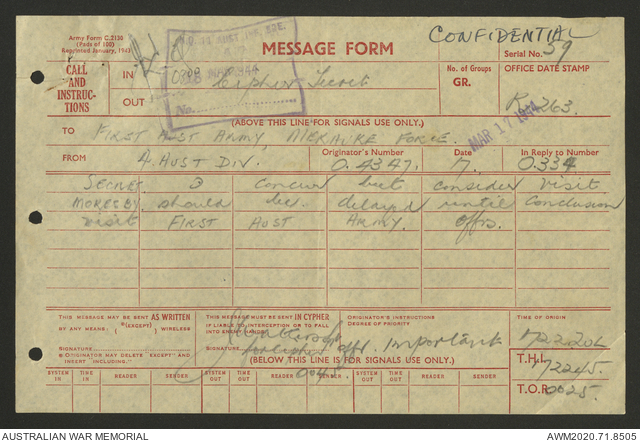 Army Form C.2130
(Pads of 100)
Reprinted January, 1943
MESSAGE FORM
CONFIDENTIAL
Serial No. 59
CALL
AND
INSTRUC-
TIONS
IN
OUT
0700
MAR 1944
No.
Cipher Secret
No. of Groups
GR.
OFFICE DATE STAMP
263.
MAR 17 1944
(ABOVE THIS LINE FOR SIGNALS USE ONLY.)
TO FIRST AUST ARMY, MERAUKE FORCE.
FROM 4 AUST DIV.
Originator's Number
O.4347.
Date
17.
In Reply to Number
O.334
SECRET. concur but consider visit
MORESBY should be delayed until conclusion
visit FIRST AUST ARMY offrs.
THIS MESSAGE MAY BE SENT AS WRITTEN
BY ANY MEANS: (*(EXCEPT) ) WIRELESS
SIGNATURE
* ORIGINATOR MAY DELETE "EXCEPT" AND
INSERT "INCLUDING."
THIS MESSAGE MUST BE SENT IN CYPHER
IF LIABLE TO INTERCEPTION OR TO FALL
INTO ENEMY HANDS.
SIGNATURE
for cipher offr.
ORIGINATOR'S INSTRUCTIONS
DEGREE OF PRIORITY
Important
TIME OF ORIGIN
172220L
T.H.I.
172245.
T.O.R.
0025.
(BELOW THIS LINE IS FOR SIGNALS USE ONLY.)
SYSTEM IN
TIME IN
READER
SENDER
SYSTEM OUT
TIME OUT
READER
SENDER
SYSTEM OUT
TIME OUT
READER
SENDER
0045
AUSTRALIAN WAR MEMORIAL
AWM2020.71.8505